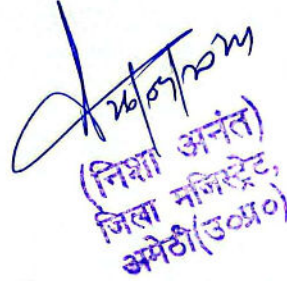 (निशा अनंत)
जिला मजिस्ट्रेट,
अमेठी(उ०प्र०)